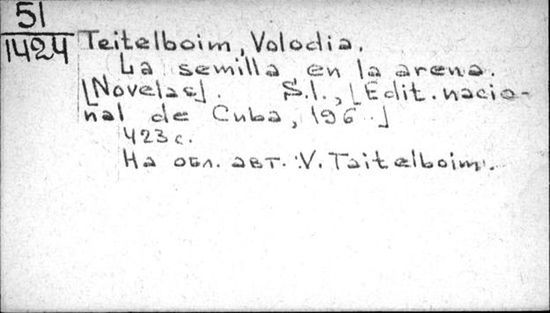 51
1424
Teitelboim, Volodia.
La semilla en la arena.
[Novelas]. S.l., [Edit. nacio-
nal de Cuba, 196..]
423 с.
На обл. авт.: V. Taitelboim.